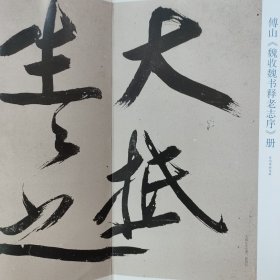 傅山《魏收魏书释老志序》册
大抵
生生之